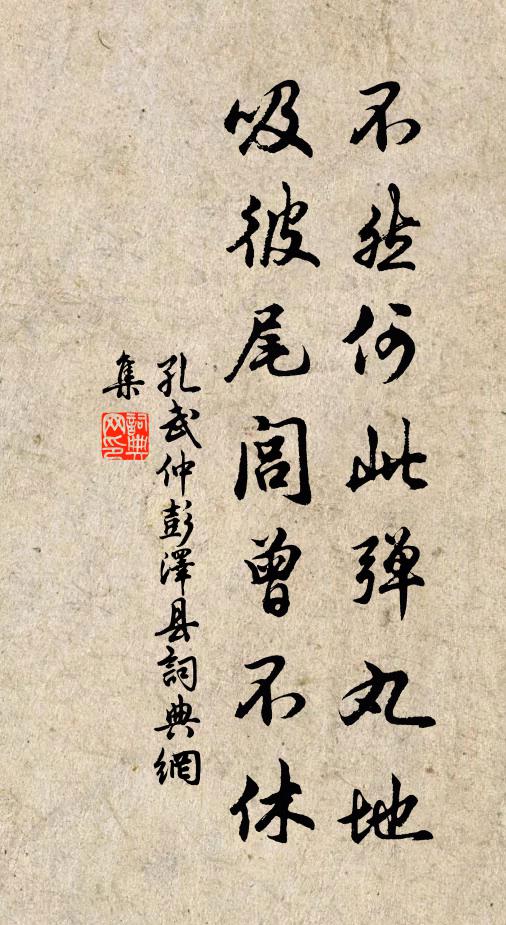 不然何此弹丸地
吸彼尾闾曾不休
孔武仲彭澤县詞典網
集
詞典
网印